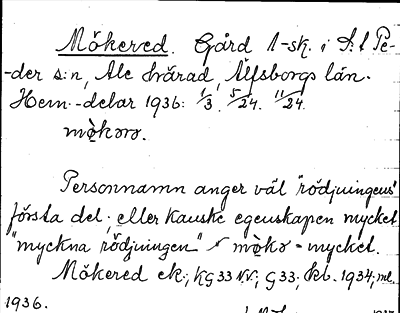 Mökered. Gård 1-sk. i S:t Pe-
-der s:n, Ale härad, Älfsborgs län.
Hem.-delar 1936: 1/3. 5/24. 11/24.
mø̀kərə.
Personnamn anger väl "rödjningens"
första del, eller kanske egenskapen mycket
"myckna rödjningen" mø̀kə = mycket.
Mökered ek., KG33 NV, G33; kb. 1934, ml
1936.